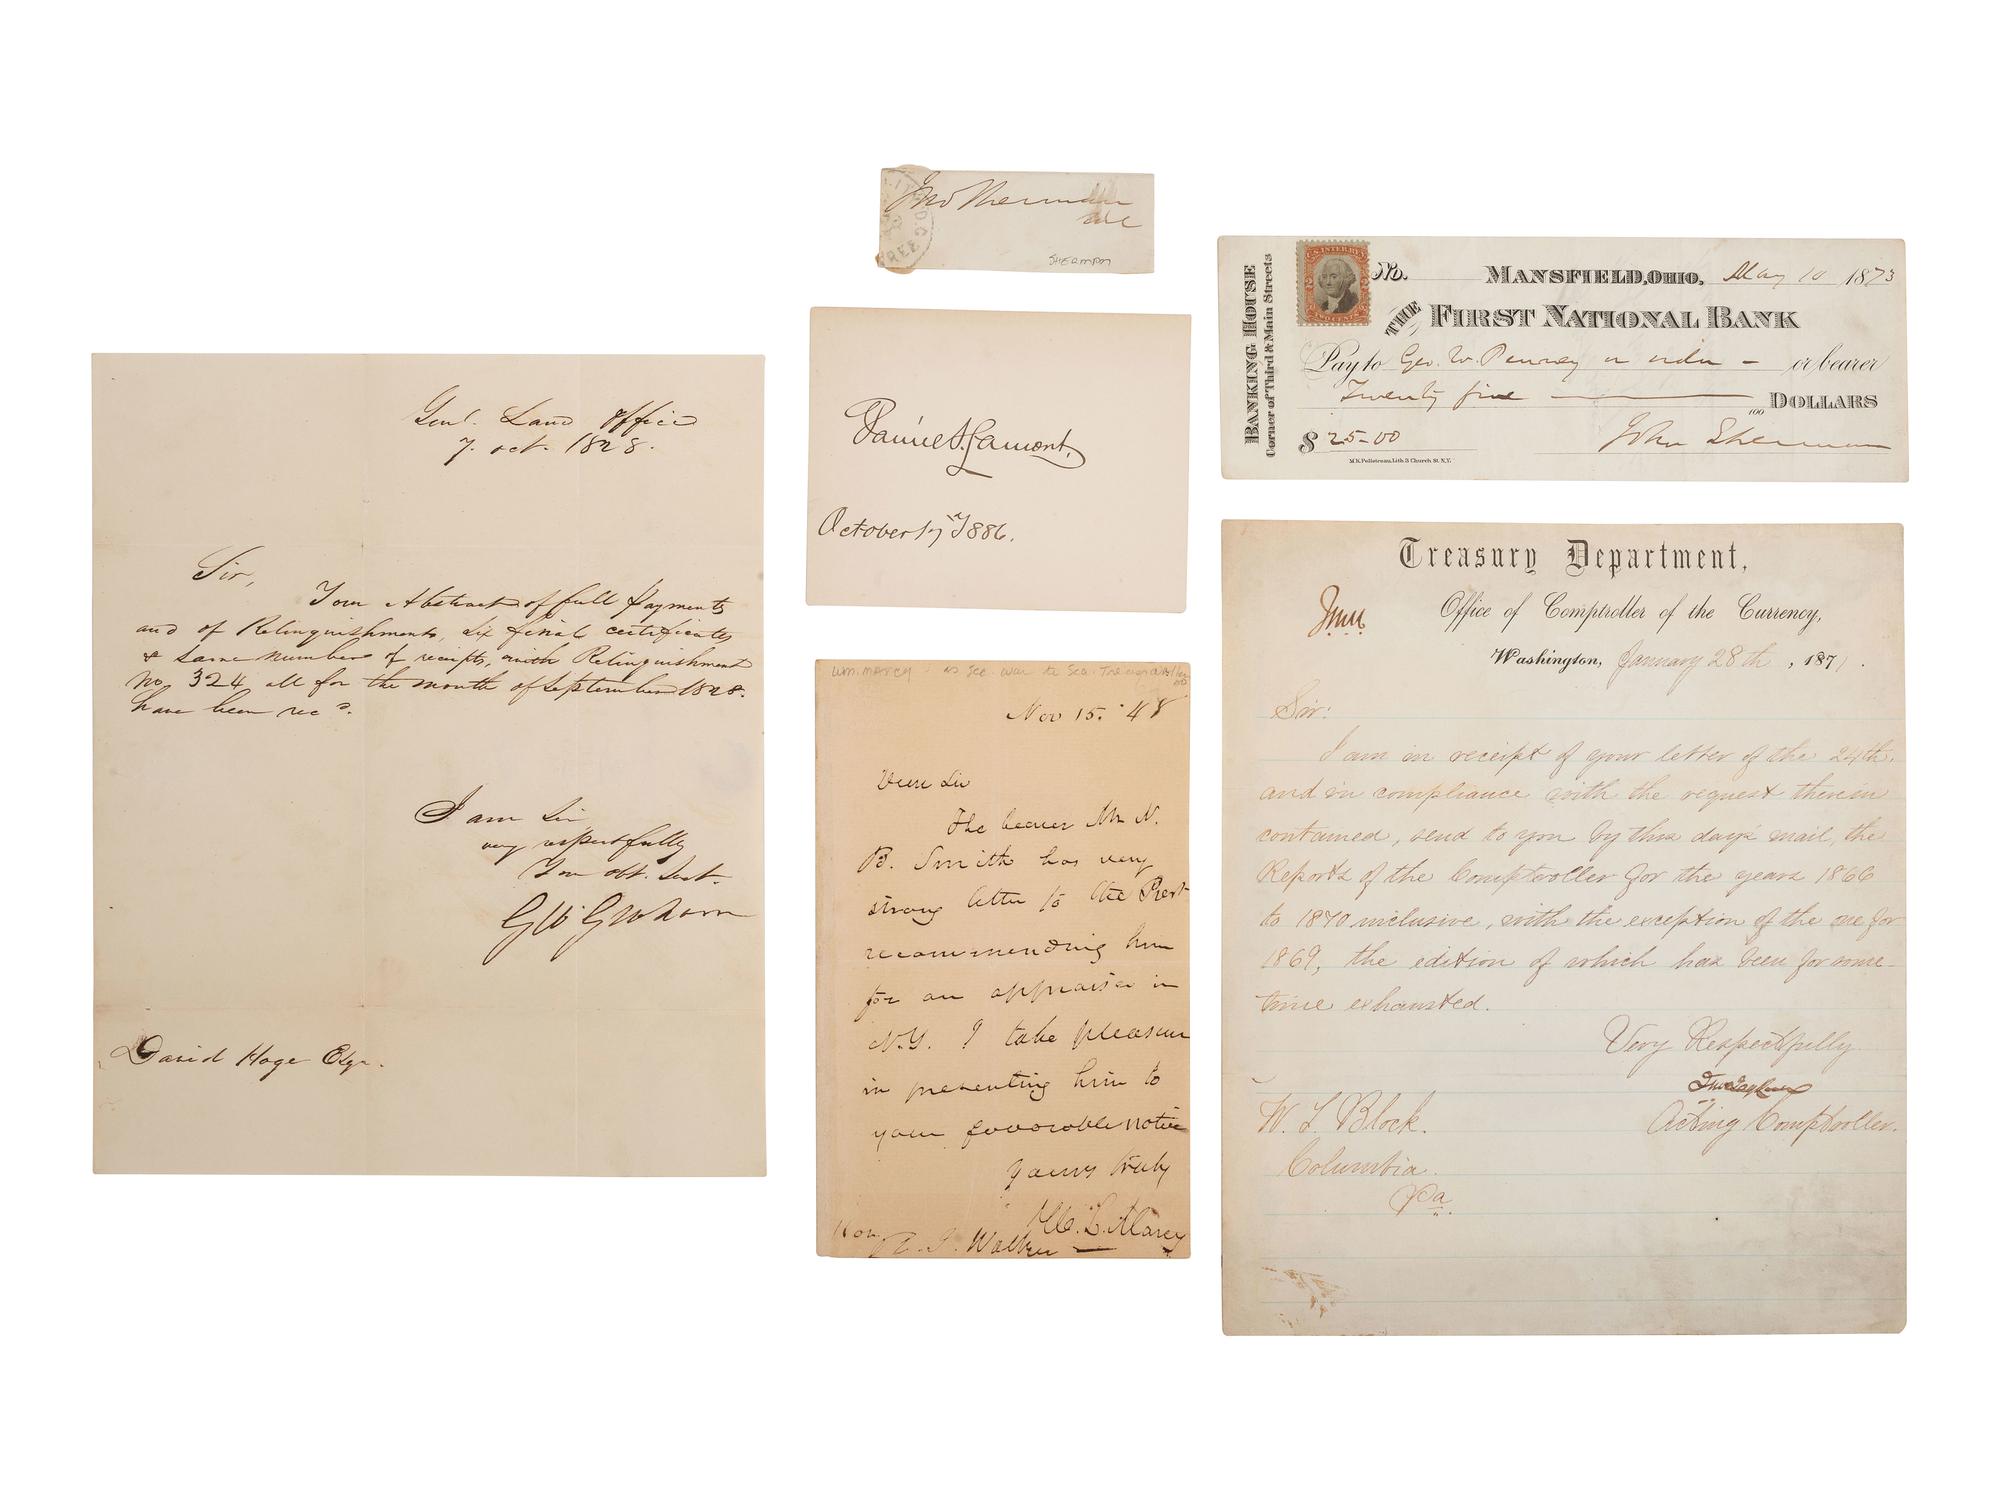 Genl. Land Office
7. Oct. 1828.
Sir,
Your Abstract of full payments
and of Relinquishments, six final certificates
& same number of receipts, with Relinquishment
No 324 all for the month of September 1828.
have been recd.
I am Sir
very respectfully
Your obt. Sevt.
G W Graham
David Hoge Esqr.
Jno Sherman
D.C.
FREE
SHERMAN
Daniel S. Lamont.
October 17 1886.
Wm. MARCY as Sec. War to Sec. Treasury
Nov 15. '48
Dear Sir
The bearer Mr N.
B. Smith has very
strong letter to the Prest
recommending him
for an appraiser in
N.Y. I take pleasure
in presenting him to
your favorable notice
Yours truly
W. L. Marcy
Hon. R. J. Walker
BANKING HOUSE
Corner of Third & Main Streets
U.S. INTER. REV.
TWO CENTS
No. MANSFIELD, OHIO, May 10 1873
THE FIRST NATIONAL BANK
Pay to Geo. W. Penney or order – or bearer
Twenty five /100 DOLLARS
$ 25-00 John Sherman
M.K. Pelletreau, Lith. 3 Church St. N.Y.
Treasury Department,
Office of Comptroller of the Currency,
Washington, January 28th, 1871.
Sir:
I am in receipt of your letter of the 24th.
and in compliance with the request therein
contained, send to you by this day's mail, the
Reports of the Comptroller for the years 1866
to 1870 inclusive, with the exception of the one for
1869, the edition of which has been for some-
time exhausted.
Very Respectfully
Acting Comptroller.
W. L. Block.
Columbia.
Pa.